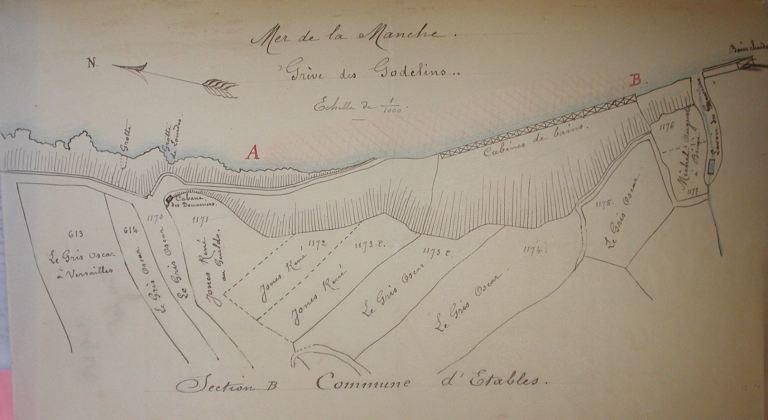 Mer de la Manche.
N
Grève des Godelins..
Echelle de 1/1000.
Bains chauds
B.
A
Grotte
Grotte
Cabines de bains.
1176
Cabane
des Douaniers
613
Le Gris Oscar
à Versailles
614
Le Gris Oscar
1170
Le Gris Oscar
1171
Jones René
au Guildo.
1172
Jones René
1173 P.
Jones René
1173 P.
Le Gris Oscar
1174
Le Gris Oscar
1175
Le Gris Oscar
1177
Section B Commune d'Etables.